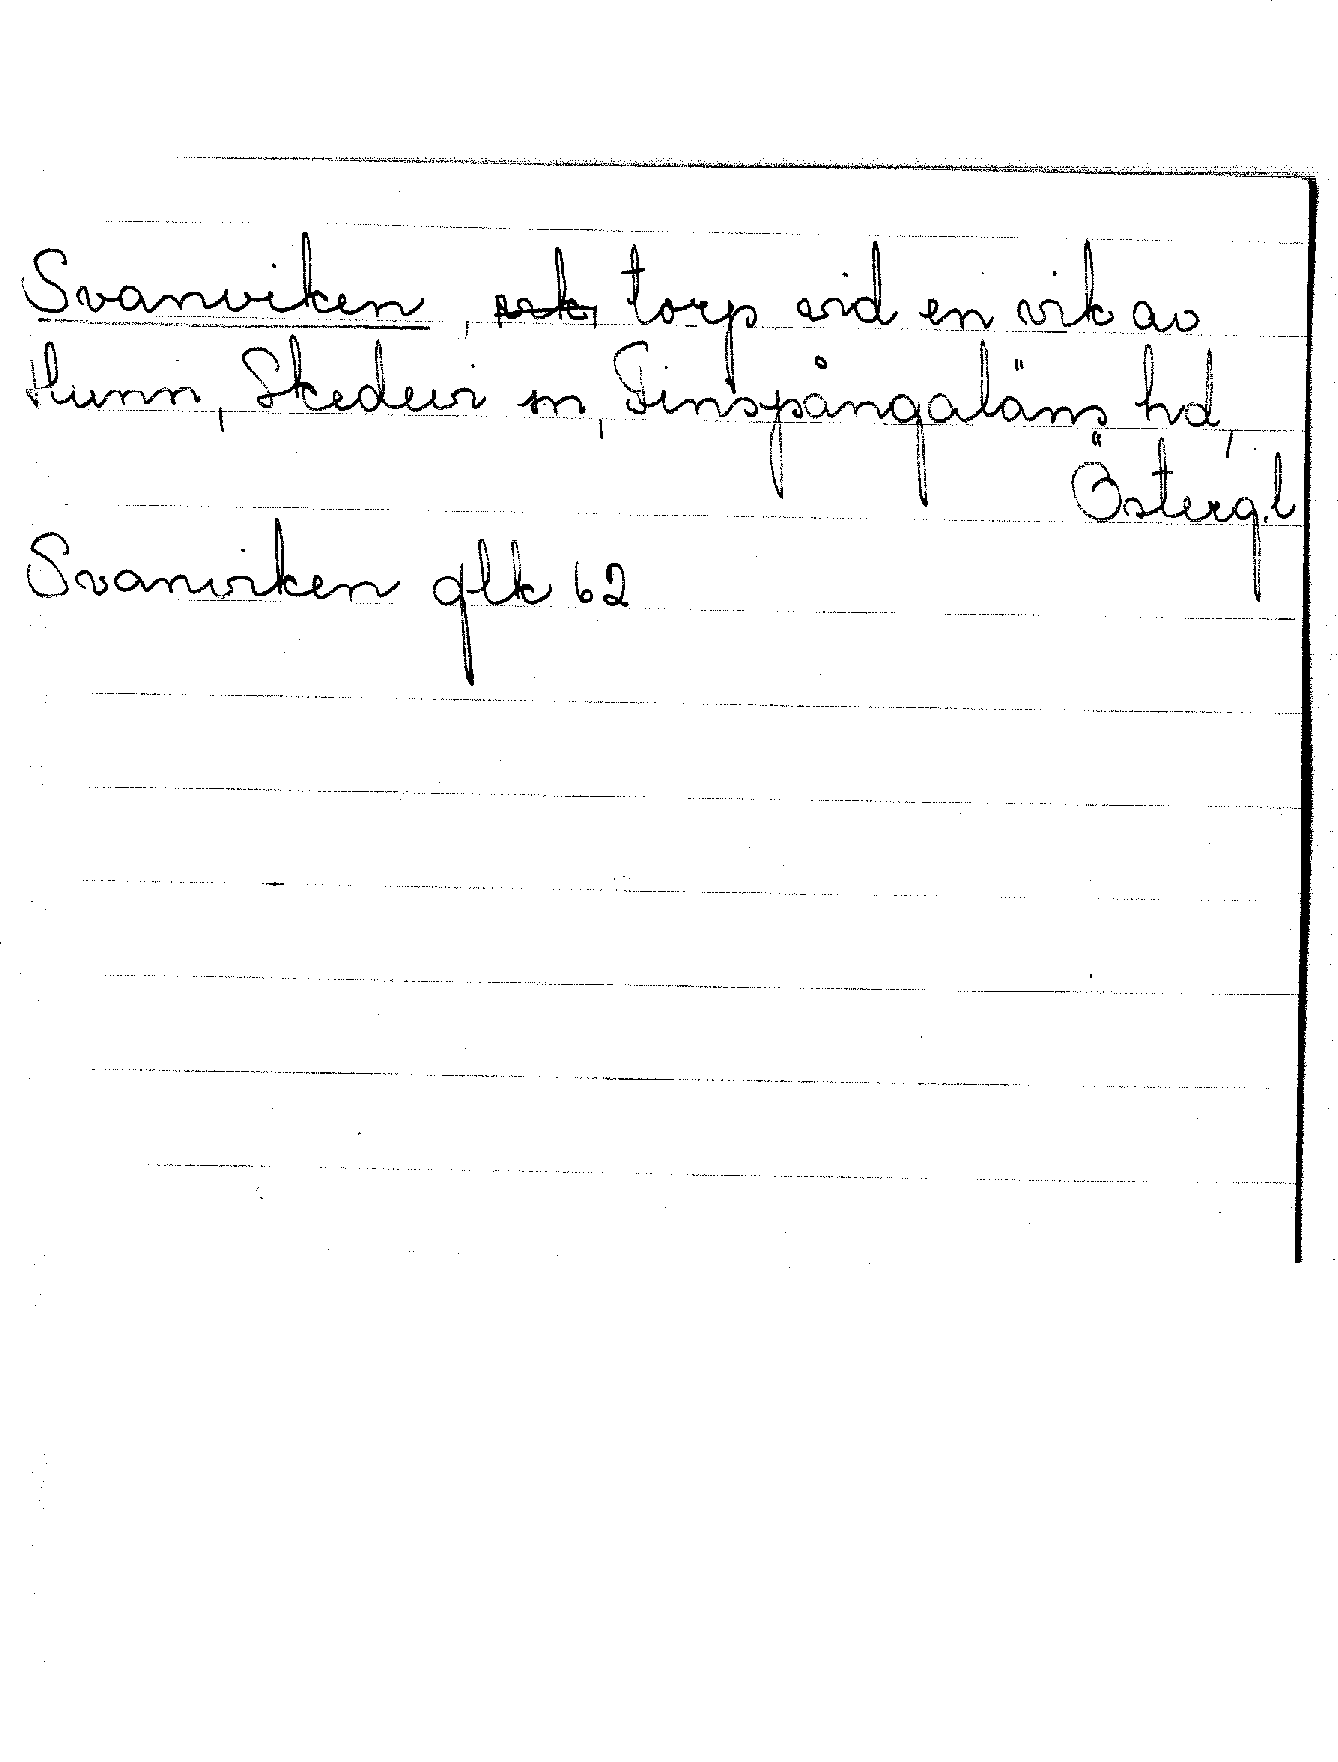 Svanviken, torp vid en vik av
Hunn, Skedevi sn, Finspångaläns hd,
Österg.l
Svanviken glk 62